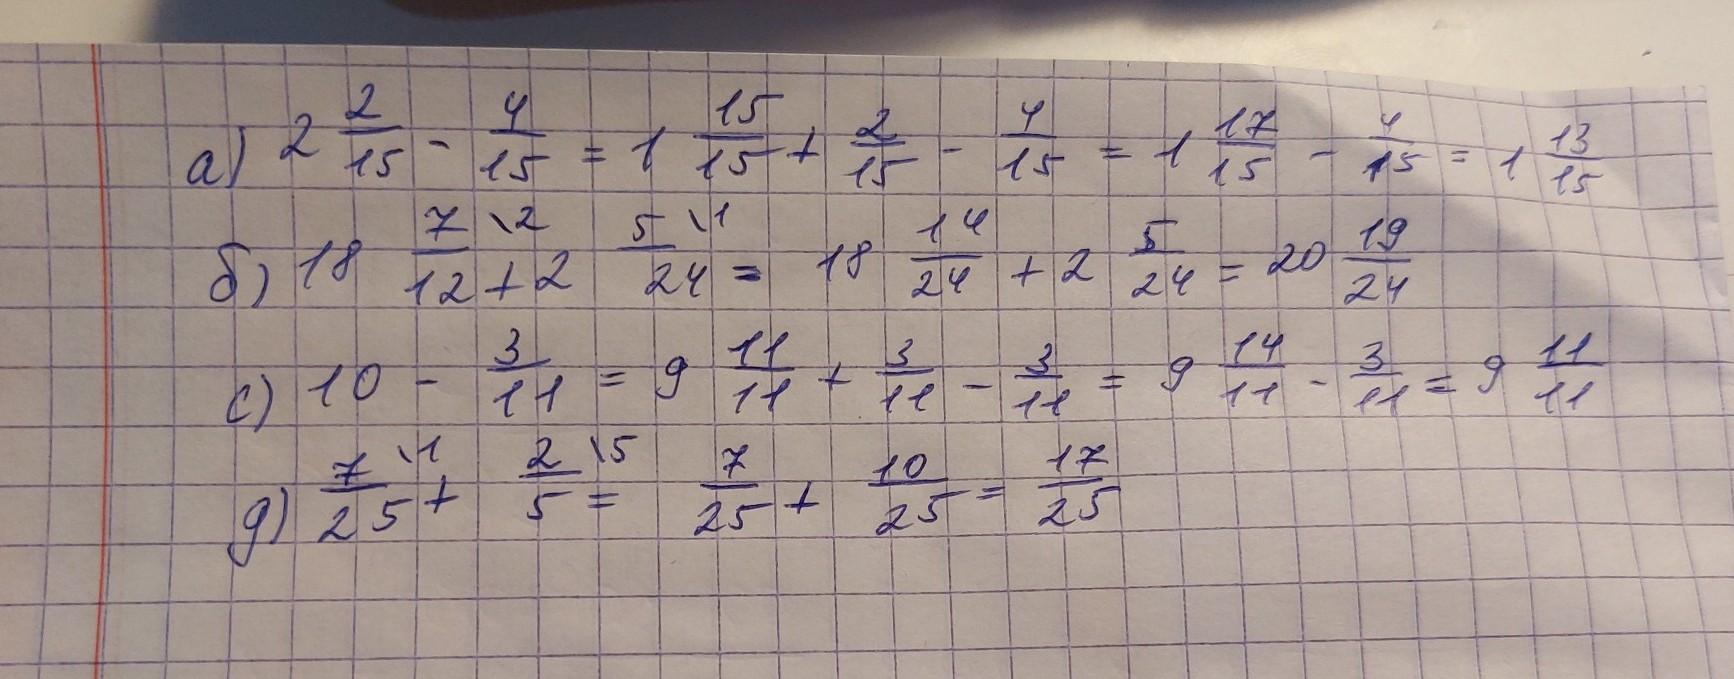 а) 2 2/15 - 4/15 = 1 15/15 + 2/15 - 4/15 = 1 17/15 - 4/15 = 1 13/15
б) 18 7/12 \2 + 2 5/24 \1 = 18 14/24 + 2 5/24 = 20 19/24
с) 10 - 3/11 = 9 11/11 + 3/11 - 3/11 = 9 14/11 - 3/11 = 9 11/11
д) 7/25 \1 + 2/5 \5 = 7/25 + 10/25 = 17/25